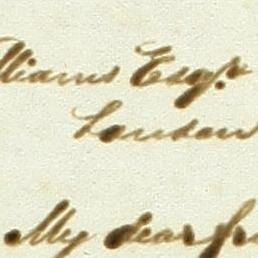 lliams Esqr
London
My dear